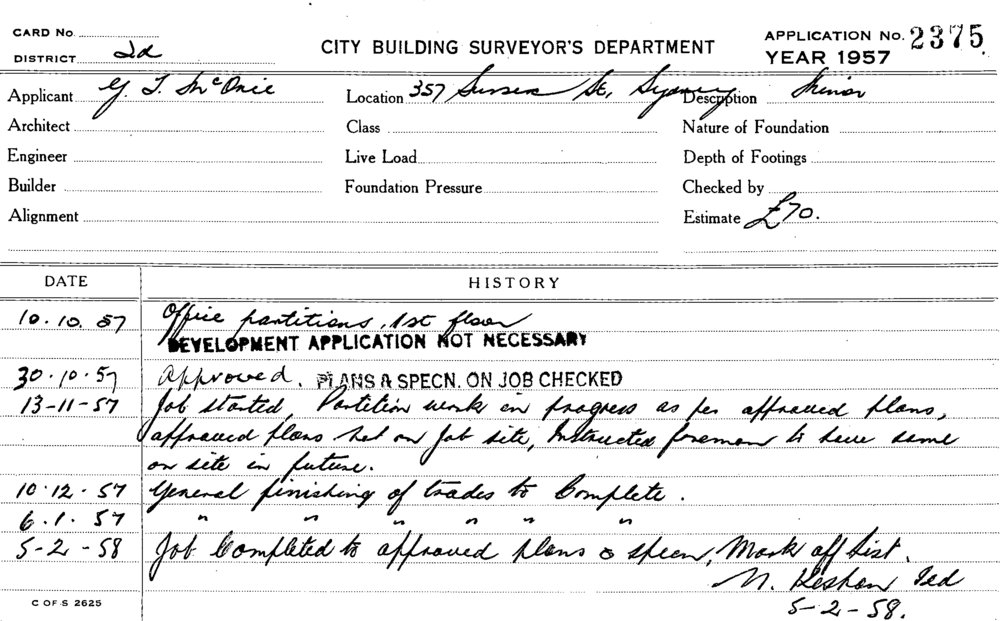 CARD No.
DISTRICT 2d
CITY BUILDING SURVEYOR'S DEPARTMENT
APPLICATION No. 2375
YEAR 1957
Applicant G. T. McOnie Location 357 Sussex St, Sydney Description Minor
Architect Class Nature of Foundation
Engineer Live Load Depth of Footings
Builder Foundation Pressure Checked by
Alignment Estimate £70.
DATE HISTORY
10.10.57 Office partitions, 1st floor
DEVELOPMENT APPLICATION NOT NECESSARY
30-10-57 Approved. PLANS & SPECN. ON JOB CHECKED
13-11-57 Job started, Partition work in progress as per approved plans,
approved plans not on job site, Instructed foreman to have same
on site in future.
10.12.57 General finishing of trades to Complete.
6.1.57 " " " " " "
5-2-58 Job Completed to approved plans & specn, Mark off list.
5-2-58.
C OF S 2625